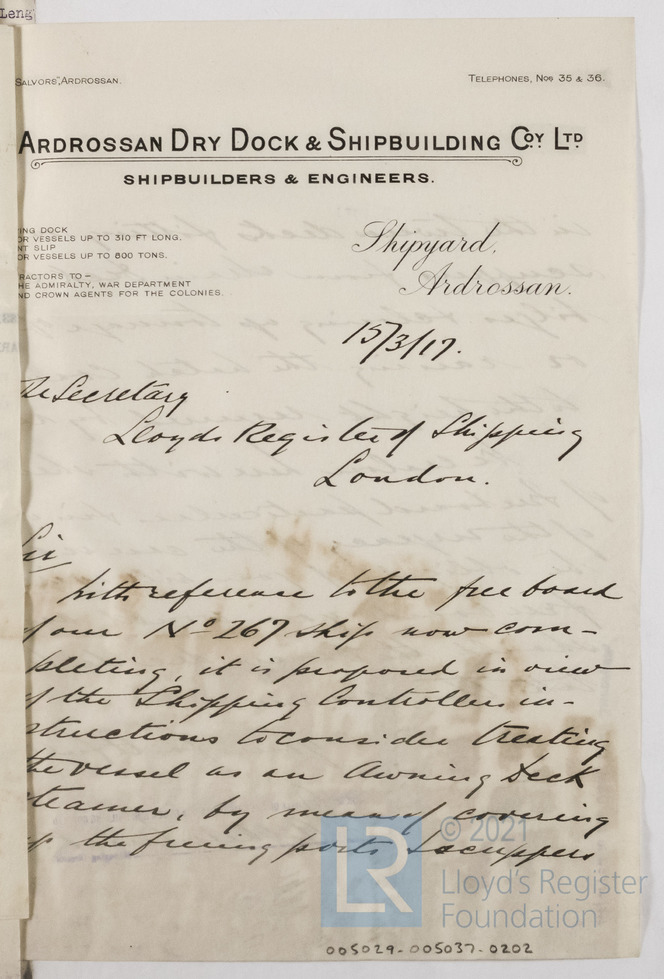 Leng
SALVORS", ARDROSSAN.
TELEPHONES, Nos 35 & 36.
ARDROSSAN DRY DOCK & SHIPBUILDING COY LTD
SHIPBUILDERS & ENGINEERS.
ING DOCK
OR VESSELS UP TO 310 FT LONG.
NT SLIP
OR VESSELS UP TO 800 TONS.
RACTORS TO –
HE ADMIRALTY, WAR DEPARTMENT
ND CROWN AGENTS FOR THE COLONIES.
Shipyard,
Ardrossan.
15/3/17.
The Secretary
Lloyds Register of Shipping
London.
Sir
With reference to the freeboard
of our No 267 ship now com-
pleting, it is proposed in view
of the Shipping Controllers in-
structions to consider treating
the vessel as an Awning Deck
steamer, by means of covering
up the freeing ports & scuppers
LR
© 2021
Lloyd's Register
Foundation
005029-005037-0202